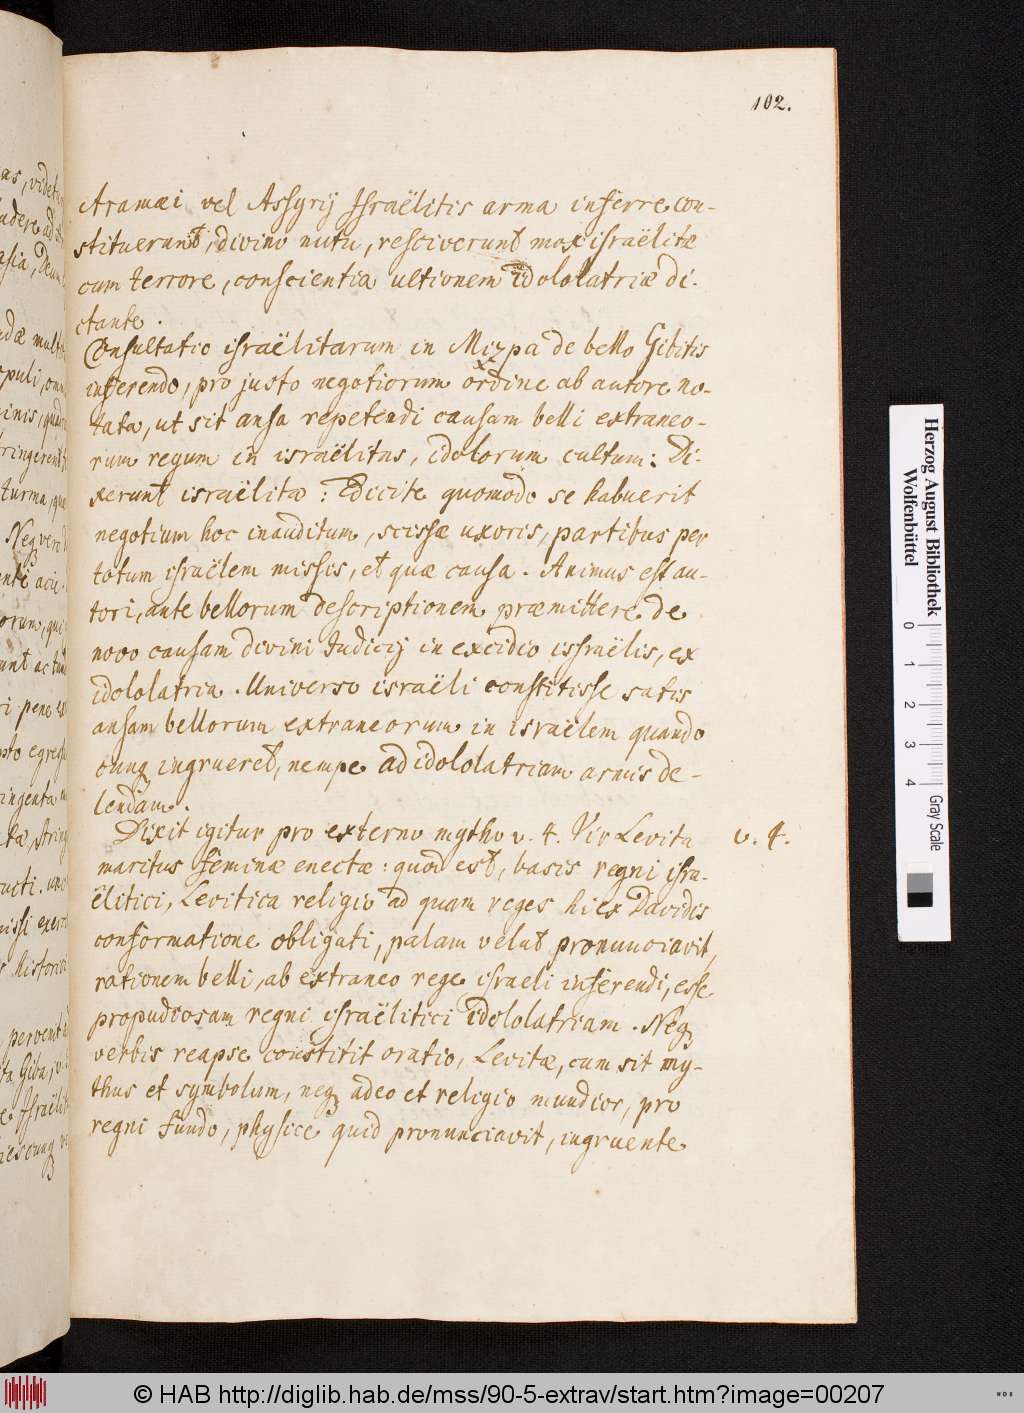 102.
Aramæi vel Assyrij Israëlitis arma inferre con-
stituerunt, divino nutu, resciverunt mox israëlitæ
cum terrore, conscientia ultionem idololatriæ di-
ctante.
Consultatio israëlitarum in Mizpa de bello Gibitis
inferendo, pro justo negotiorum ordine ab autore no-
tata, ut sit ansa repetendi causam belli extraneo-
rum regum in israëlitas, idolorum cultum: Di-
xerunt israëlitæ: Edicite quomodo se habuerit
negotium hoc inauditum, scissæ uxoris, partibus per
totum israëlem missis, et quæ causa. Animus est au-
tori, ante bellorum descriptionem præmittere de
novo causam divini Judicij in excidio issraëlis, ex
idololatria. Universo israëli constitisse satis
ansam bellorum extraneorum in israëlem quando
cunq ingrueret, nempe ad idololatriam armis de-
lendam.
Dixit igitur pro externo mytho v. 4. Vir Levita
v. 4.
maritus feminæ enectæ: quod est, basis regni isra-
ëlitici, Levitica religio ad quam reges hi ex Davidis
conformatione obligati, palam velut pronunciavit,
rationem belli, ab extraneo rege israeli inferendi, esse
propudiosam regni israëlitici idololatriam. Neq
verbis reapse constitit oratio, Levitæ, cum sit my-
thus et symbolum, neq adeo et religio mundior, pro
regni fundo, physice quid pronunciavit, ingruente
as, videt
Neq vero
r historic
pervent
Herzog August Bibliothek
Wolfenbüttel
0 1 2 3 4
Gray Scale
© HAB http://diglib.hab.de/mss/90-5-extrav/start.htm?image=00207